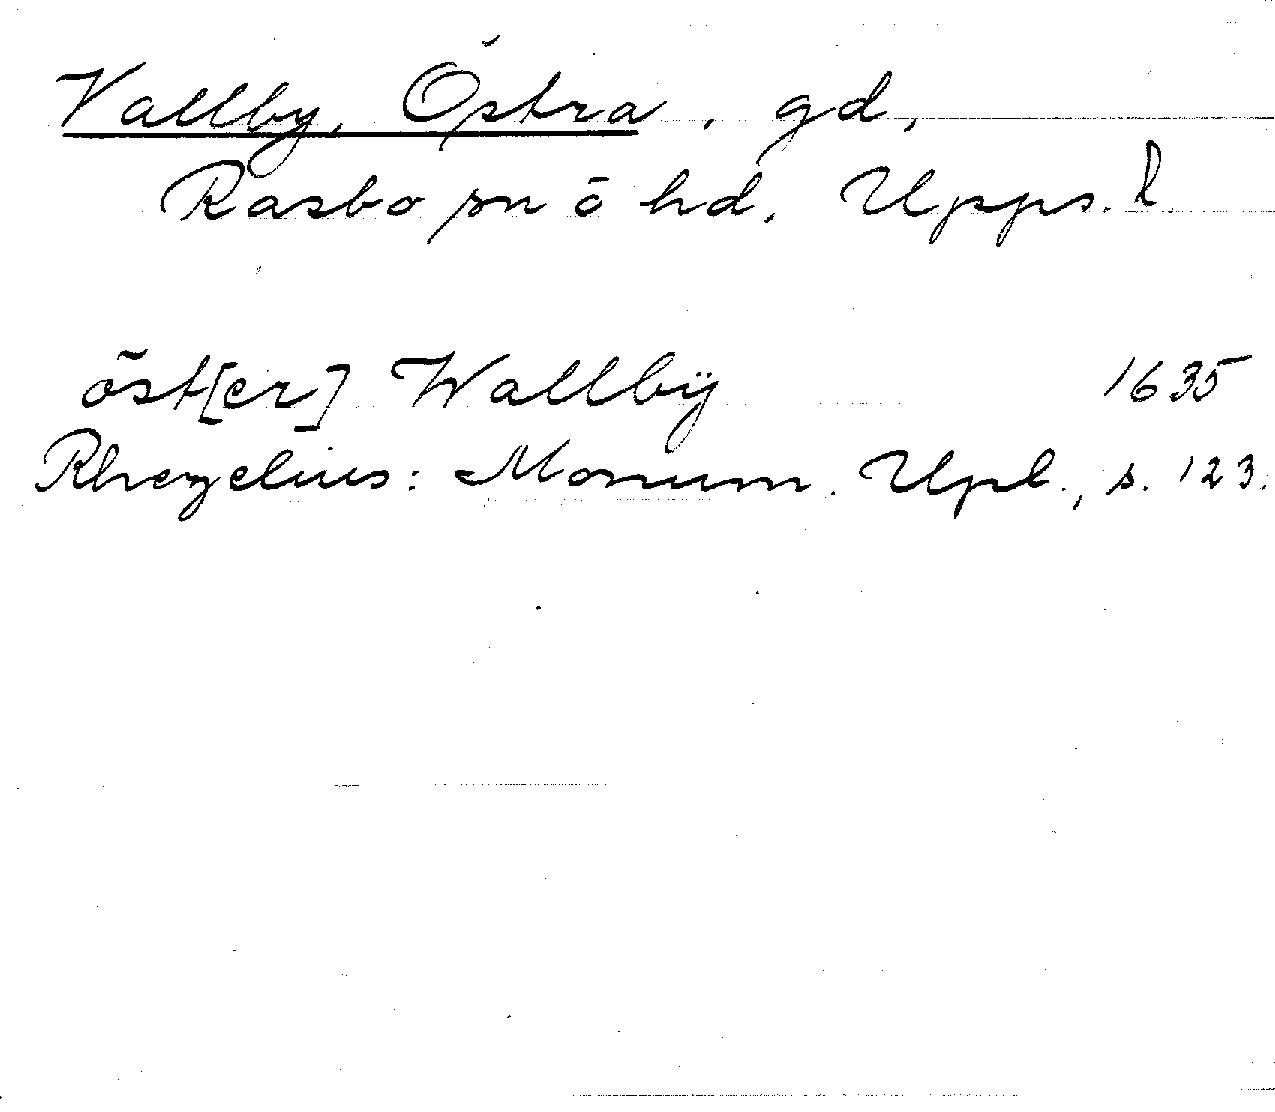 Vallby, Östra, gd,
Rasbo sn ō hd, Upps. l
öst[er] Wallbÿ 1635
Rhezelius: Monum. Upl., s. 123.